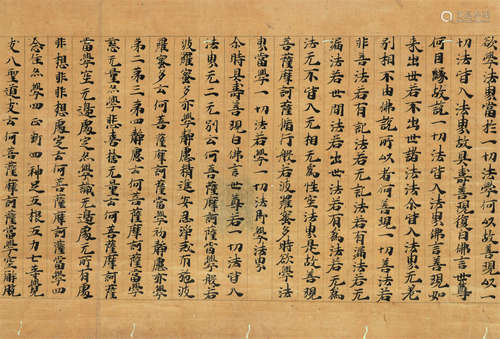 欲學法界當於一切法學何以故善現以一
切法皆入法界故具壽善現復白佛言世尊
何因緣故說一切法皆入法界佛言善現如
來出世若不出世諸法法尒皆入法界无差
別相不由佛說所以者何善現一切善法若
非善法若有記法若无記法若有漏法若无
漏法若世間法若出世法若有為法若无為
法无不皆入无相无為性空法界是故善現
菩薩摩訶薩脩行般若波羅蜜多時欲學法
界當學一切法若學一切法即學法界
尒時具壽善現白佛言世尊若一切法皆入
法界无二无別云何菩薩摩訶薩當學般若
波羅蜜多亦學靜慮精進安忍淨戒布施波
羅蜜多云何菩薩摩訶薩當學初靜慮亦學
第二第三第四靜慮云何菩薩摩訶薩當學
慈无量亦學悲喜捨无量云何菩薩摩訶薩
當學空无邊處定亦學識无邊處无所有處
非想非非想處定云何菩薩摩訶薩當學四
念住亦學四正斷四神足五根五力七等覺
支八聖道支云何菩薩摩訶薩當學空解脫